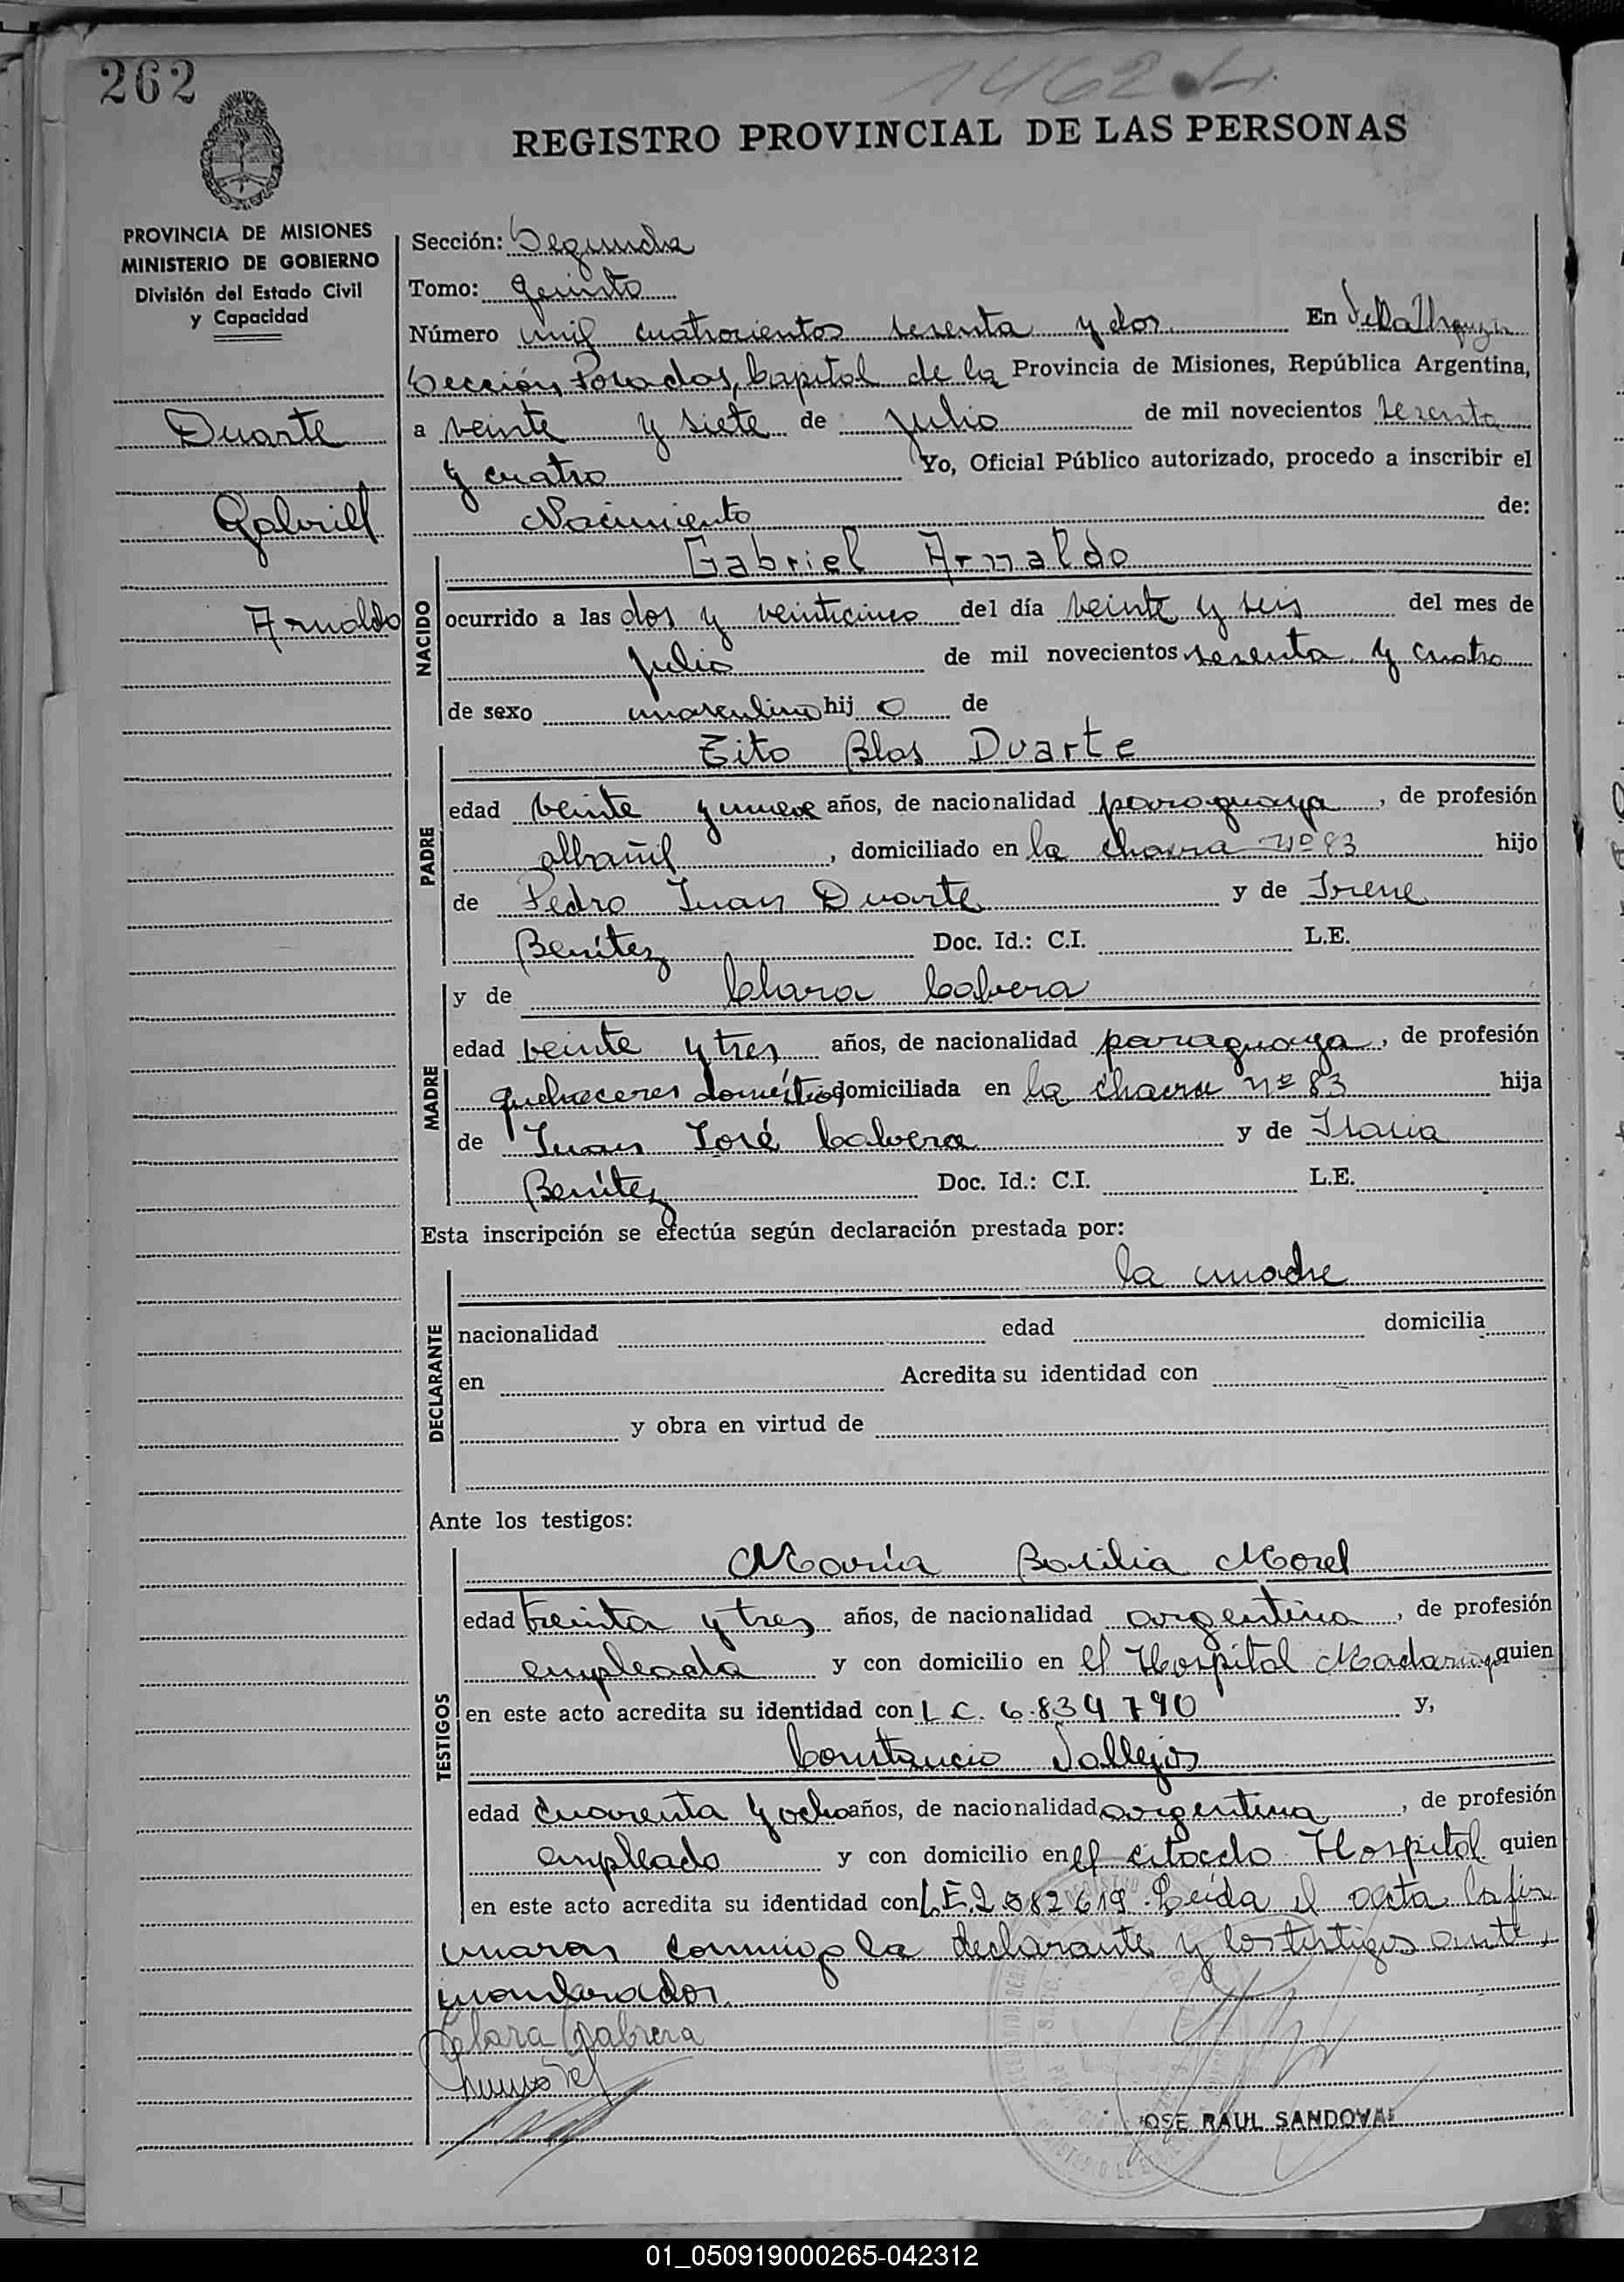 262
1462
REGISTRO PROVINCIAL DE LAS PERSONAS
PROVINCIA DE MISIONES
MINISTERIO DE GOBIERNO
División del Estado Civil
y Capacidad
Duarte
Gabriel
Arnaldo
Sección: Segunda
Tomo: Quinto
Número mil cuatrocientos sesenta y dos En Villa Urquiza
Sección, Posadas, Capital de la Provincia de Misiones, República Argentina,
a veinte y siete de julio de mil novecientos sesenta
y cuatro Yo, Oficial Público autorizado, procedo a inscribir el
Nacimiento de:
NACIDO
Gabriel Arnaldo
ocurrido a las dos y veinticinco del día veinte y seis del mes de
julio de mil novecientos sesenta y cuatro
de sexo masculino hij o de
PADRE
Tito Blas Duarte
edad veinte y nueve años, de nacionalidad paraguaya, de profesión
albañil, domiciliado en la chacra nº 83 hijo
de Pedro Juan Duarte y de Irene
Benítez Doc. Id.: C.I. L.E.
MADRE
y de Clara Cabrera
edad veinte y tres años, de nacionalidad paraguaya, de profesión
quehaceres domésticos domiciliada en la chacra nº 83 hija
de Juan José Cabrera y de
Benítez Doc. Id.: C.I. L.E.
Esta inscripción se efectúa según declaración prestada por:
DECLARANTE
la madre
nacionalidad edad domicilia
en Acredita su identidad con
y obra en virtud de
Ante los testigos:
TESTIGOS
María Basilia Morel
edad treinta y tres años, de nacionalidad argentina, de profesión
empleada y con domicilio en el Hospital Madariaga quien
en este acto acredita su identidad con L.C. 6.839.790 y,
Constancio Vallejos
edad cuarenta y ocho años, de nacionalidad argentina, de profesión
empleado y con domicilio en el citado Hospital quien
en este acto acredita su identidad con L.E. 2.582.619. Leída el acta la fir
maron conmigo la declarante y los testigos ante,
mombrados.
Clara Cabrera
JOSE RAUL SANDOVAL
01_050919000265-042312